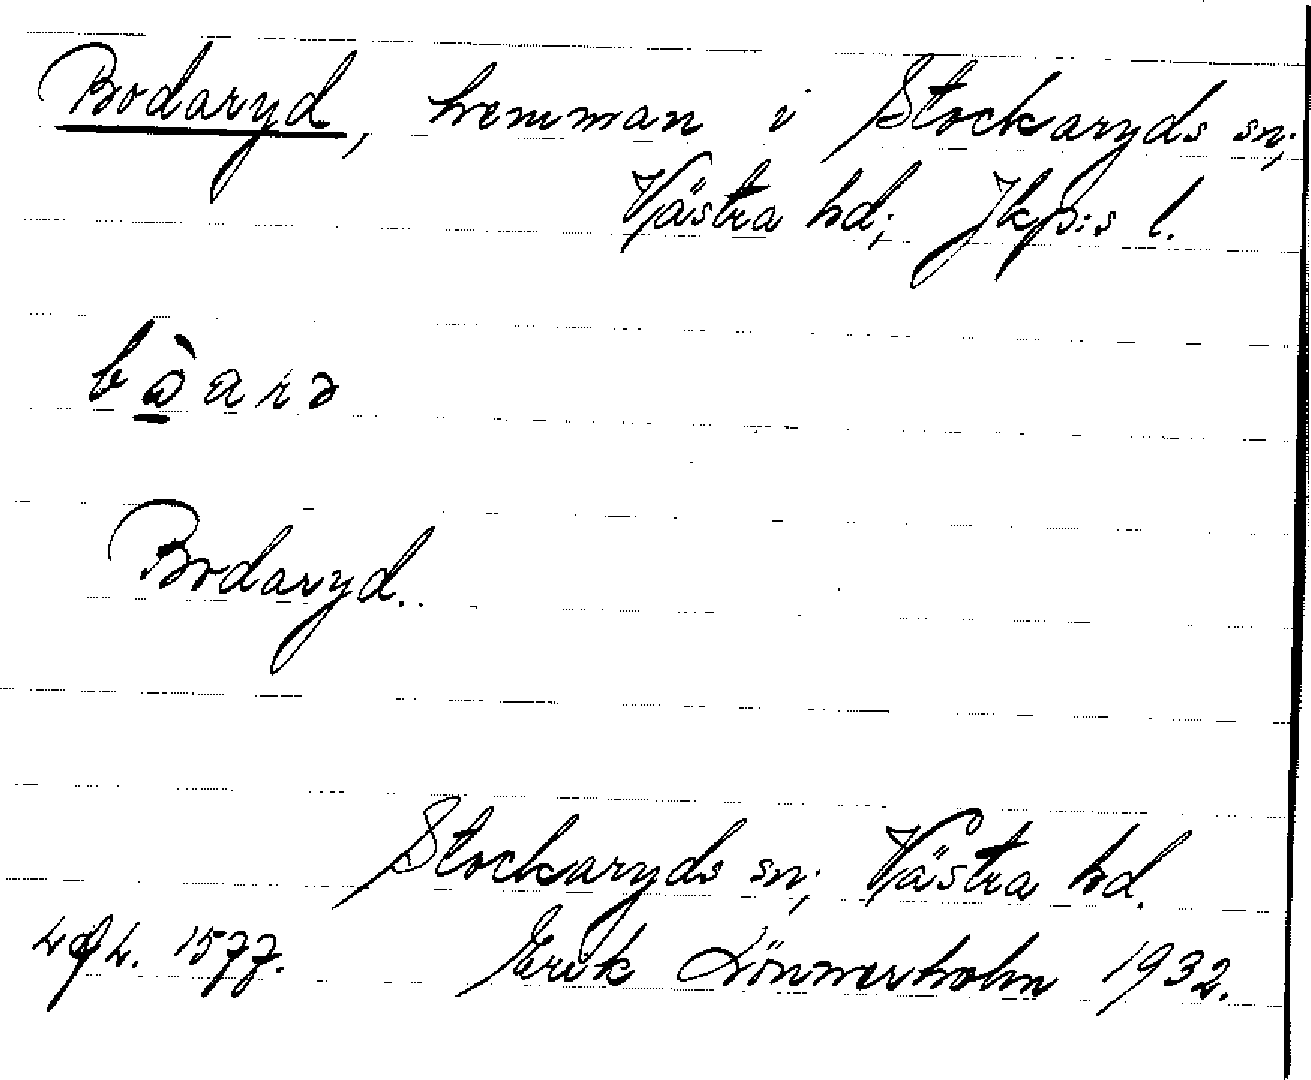 Bodaryd, hemman i Stockaryds sn;
Västra hd; Jkp:s l.
bò̠arə
Bodaryd..
Stockaryds sn; Västra hd.
1577.
Erik Lönnerholm 1932.